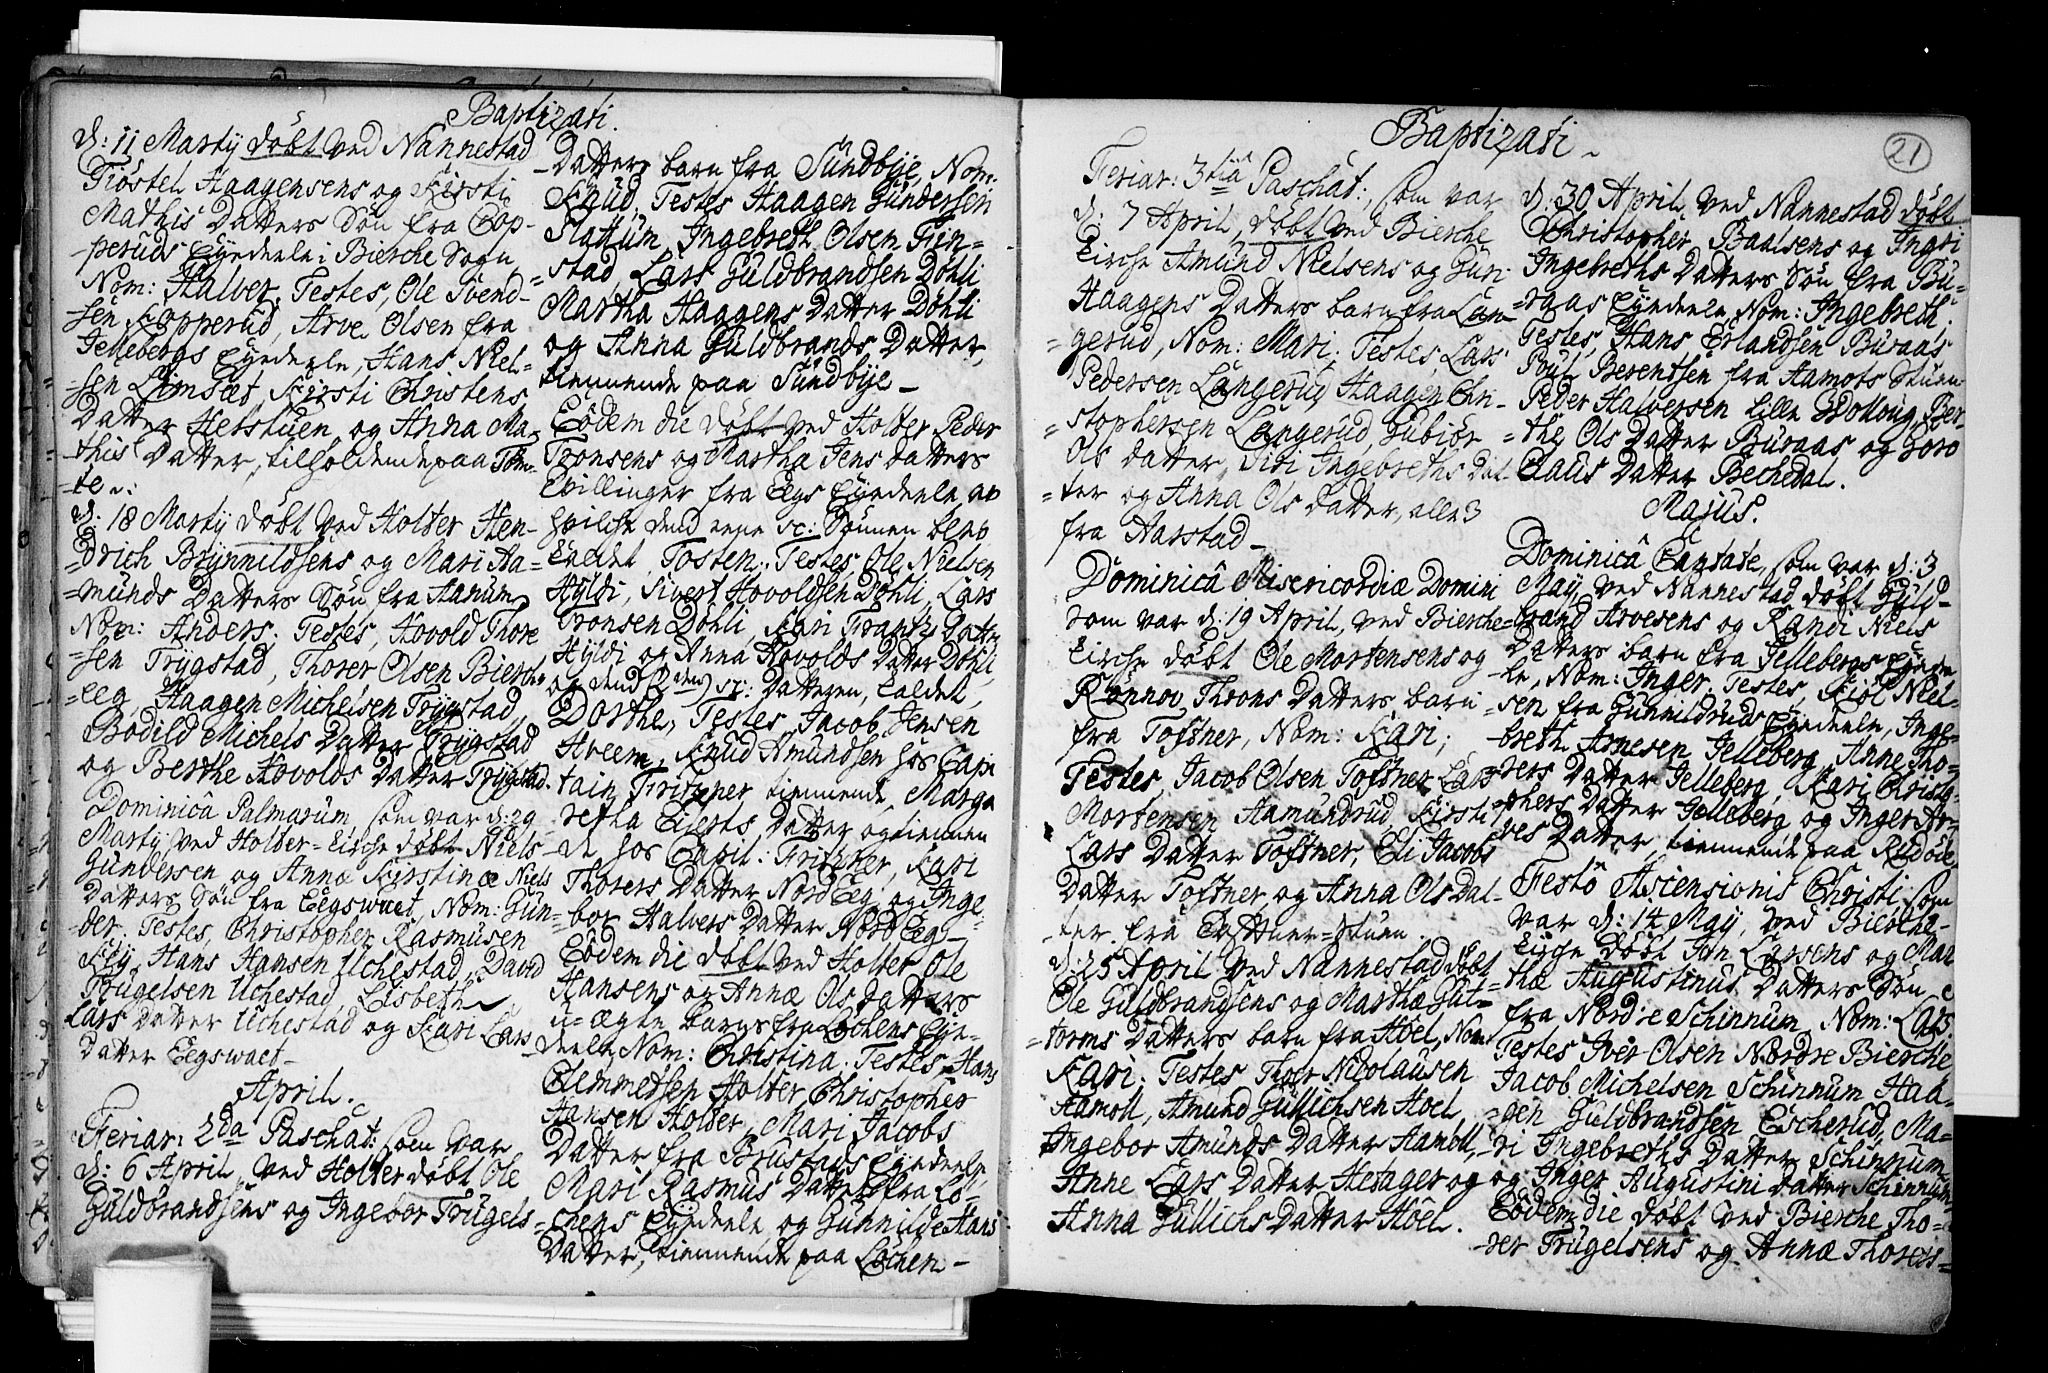 Baptizati.
d: 11 Martÿ døbt ved Nannestad
Tiøstel Haagensens og Kirsti
Mathis Datters Søn fra Cop-
-peruds Eÿedeele i Bierche Sogn
Nom: Halver. Testes, Ole Svend-
sen Kopperud, Arve Olsen fra
Jellebergs Eÿedeele, Hans Niel-
sen Limsæt, Kirsti Christens
Datter Hexstuen, og Anna Ma-
-this Datter, tilholdende paa Tom-
-te
d: 18 Martÿ døbt ved Holter Hen-
=drich Brÿnnildsens og Mari Aa-
=munds Datters Søn fra Aanum
Nom: Anders. Testes, Hovold Thore
=sen Trÿgstad, Thorer Olsen Bierche
=eeg, Haagen Michelsen Trÿgstad,
Bodild Michels Datter Trÿgstad
og Berthe Hovolds Datter Trÿgstad.
Dominicâ Palmarum, som var d: 29
Martÿ ved Holter=Kirche døbt Niels
Gundersen og Annæ Kirstinæ Niels
Datters Søn fra Eegswaet, Nom: Gün-
der. Testes, Christopher Rasmusen
Eeg, Hans Hansen Uchestad, David
Trugelsen Uchestad, Lisbeth
Lars Datter Uchestad og Kari Lars
Datter Eegswaet-
April.
Feriar: 2da Paschat: som var
d: 6 April, ved Holter døbt Ole
Guldbrandsens og Ingebor Trugels
-Datters barn fra Sündbÿe, Nom:
Knud. Testes Haagen Gündersen
Slattum, Ingebreth Olsen Frin-
=stad, Lars Guldbrandsen Døhli
Martha Haagens Datter Døhli
og Anna Guldbrands Datter,
tiennende paa Sündbÿe-
Eôdem die døbt ved Holter Peder
Tronsens og Martha Jens Datters
Tvillinger fra Eegs Eÿedeele, av
hvilche dend eene sc: Sønnen blev
kaldet Tosten. Testes, Ole Nielsen
Hÿldi, Sivert Hovoldsen Døhli, Lars
Tronsen Døhli, Kari Frantz Datter
Hÿldi og Anna Hovolds Datter Døhli,
og dend Anden sc: Datteren, kaldet,
Dorthe, Testes Jacob Jensen
Hveem, Knud Amundsen hos Capi
tain Fritzner tiennende, Marga
retha Eilerts Datter og tiennen
de hos Capit: Fritzner, Kari
Thorers Datter Nord Eeg, og Inge-
=bor Halvers Datter Nord Eeg-
Eôdem die døbt ved Holter Ole
Hansens og Annæ Ols Datters
u=ægte barn fra Lochens Eÿe-
deele, Nom: Christina. Testes, Hans
Clemmetsen Holter, Christopher
Hansen Holter, Mari Jacobs
Datter fra Brustads Eÿedeele,
Mari Rasmus Datter fra Lo-
=chens Eÿedeele, og Gunnilde Hans
Datter, tiennende paa Lochen-
Baptizati-
21
Feriar: 3tiâ Paschat:, som var
d: 7 April, døbt ved Bierche
Kirche Amund Nielsens og Guri
Haagens Datters barn fra Lan-
=gerud, Nom: Mari. Testes, Lars
Pedersen Langerud, Haagen Chri-
=stophersen Langerud, Gubiør
Ols datter, Siri Ingebreths Dat-
=ter og Anna Ols datter, alle 3
fra Harstad-
Dominicâ Misericordiæ Domini
som var d: 19 April, ved Bierche=
Kirche døbt Ole Mortensens og
Rønnov Throns Datters barn
fra Toftner, Nom: Kari;
Testes, Jacob Olsen Toftner, Lars
Mortensen Aamundrud, Kirsti
Lars Datter Toftner, Eli Jacobs
Datter Toftner, og Anna Ols Dat-
-ter fra Toftner=stuen.
d: 25 April ved Nannestad døbt
Ole Guldbrandsens og Marthæ Gut-
=torms Datters barn fra Hoel, Nom:
Kari. Testes Thor Nicolausen
Aamoll, Amund Gullichsen Hoel,
Ingebor Amunds Datter Aamoll,
Anne Lars Datter Hexager og
Anna Gullichs Datter Hoel.
d: 30 April ved Nannestad døbt
Christopher Baalsens og Ingri
Ingebreths Datters Søn fra Bu-
=raas Eÿedeele, Nom: Ingebreth.
Testes, Hans Erlandsen Buraas,
Poul Berentsen fra Aamots Stuen
Peder Halversen Lille Wolloug, Ber-
=the Ols Datter Buraas og Goro
Claus Datter Bechedal.
Majus.
Dominicâ Cantate, som var d: 3
Maÿ, ved Nannestad døbt Guld-
brand Arvesens og Randi Niels
Datters barn fra Jellebergs Eÿedee
le, Nom: Inger. Testes, Kiøl Niel-
=sen fra Gunnildrud Eÿedeele, Inge-
-breth Arnesen Jelleberg, Anne Tho-
rers Datter Jelleberg, Kari Christo-
phers Datter Jelleberg og Inger Ar-
ves Datter, tiennende paa Rudøe
Festô Ascensionis Christi som
var d: 14 Maÿ, ved Bierche-
Kirche døbt Jon Larsens og Mar
thæ Augustinus Datters Søn
fra Nordre Schinnum, Nom: Lars,
Testes Iver Olsen Nordre Bierche
Jacob Michelsen Schinnum Haa-
=gen Guldbrandsen Escherud, Ma-
-ri Ingebreths Datter Schinnum
og Inger Augustini Datter Schinnum
Eôdem die døbt ved Bierche Tho-
=rer Trugelsens og Annæ Thorers=